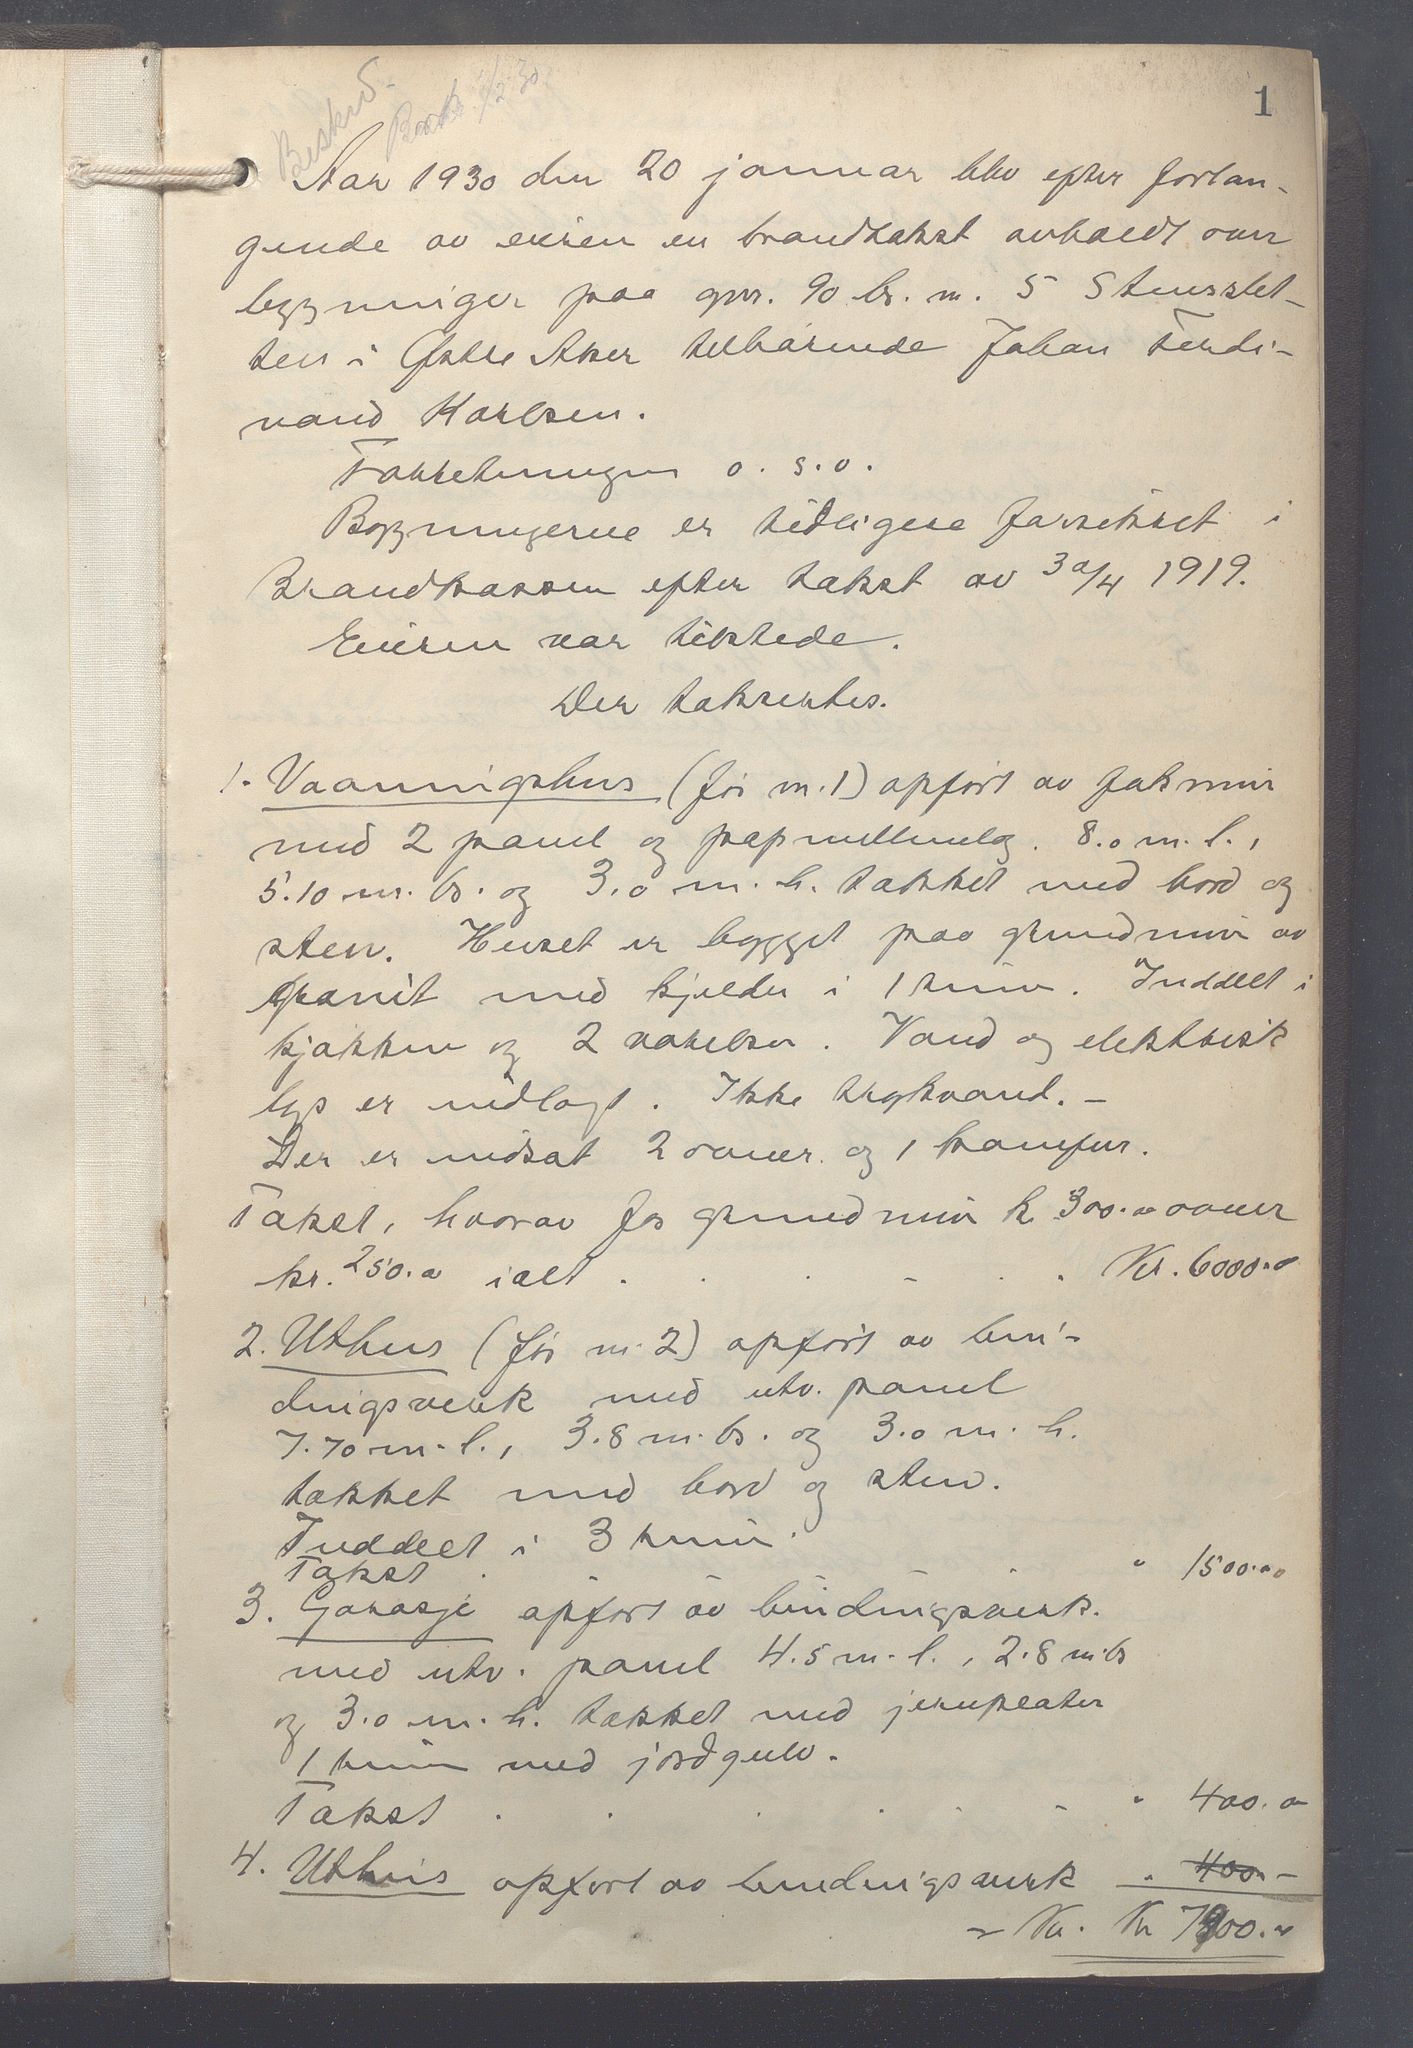 1
Beskr.
Aar 1930 den 20 januar blev efter forlan-
gende av eieren en brandtakst avholdt over
bygninger paa gnr. 90 br. nr. 5 Stensslet-
ten i Østre Aker tilhørende Johan Ferdi-
nand Karlsen.
Forretningen o. s. v.
Bygningerne er tidligere forsikret i
Brandkassen efter takst av 30/4 1919.
Eieren var tilstede.
Der takseertes.
1. Vaaningshus (før nr. 1) opført av
med 2 panel og papmellemlag. 8.0 m. l.,
5.10 m. br. og 3.0 m. h. tækket med bord og
sten. Huset er bygget paa grundmur av
granit med kjelder i 1 rum. Inddelt i
kjøkken og 2 værelser. Vand og elektrisk
lys er indlagt. Ikke trykvand. -
Der er indsat 2 ovner og 1 komfur.
Takst, hvorav for grundmur kr 300.00 ovner
kr. 250.00 ialt . . . . . . Kr. 6000.00
2. Uthus (før nr. 2) opført av bin-
dingsverk med utv. panel
7.70 m. l., 3.8 m. br. og 3.0 m. h.
tækket med bord og sten.
Inddelt i 3 rum.
Takst . . . . " 1500.00
3. Garasje opført av bindingsverk.
med utv. panel 4.5 m. l., 2.8 m. br
og 3.0 m. h. tækket med jernplater
1 rum med jordgulv.
Takst . . . . . . " 400.00
4. Uthus opført av bindingsverk " 400 -
Kr. Kr 7900.00